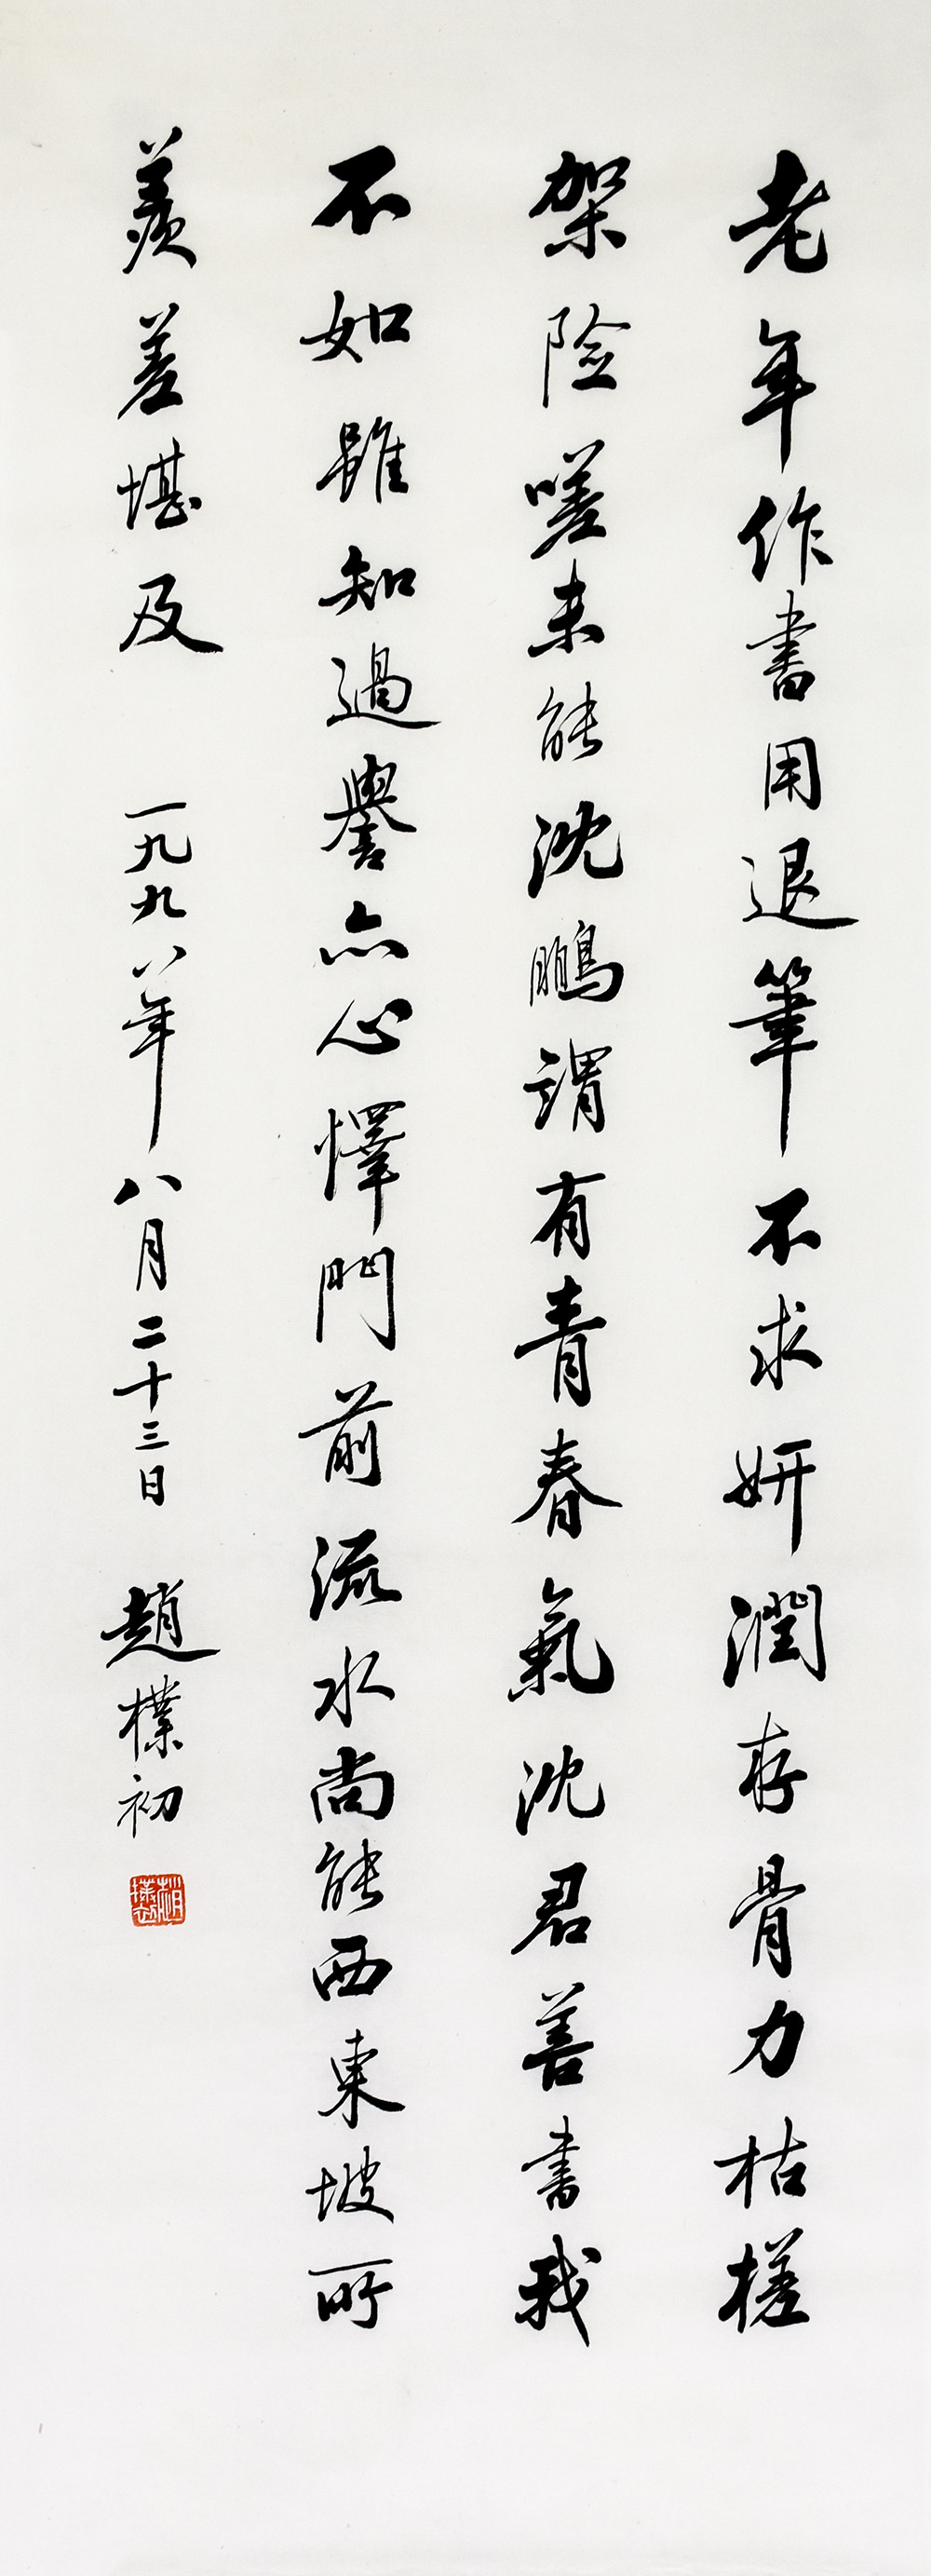 老年作書用退筆不求妍潤存骨力枯槎
架險嗟未能沈鵬謂有青春氣沈君善書我
不如雖知過譽亦心懌門前流水尚能西東坡所
羨差堪及 一九九八年八月二十三日 趙樸初
趙樸初